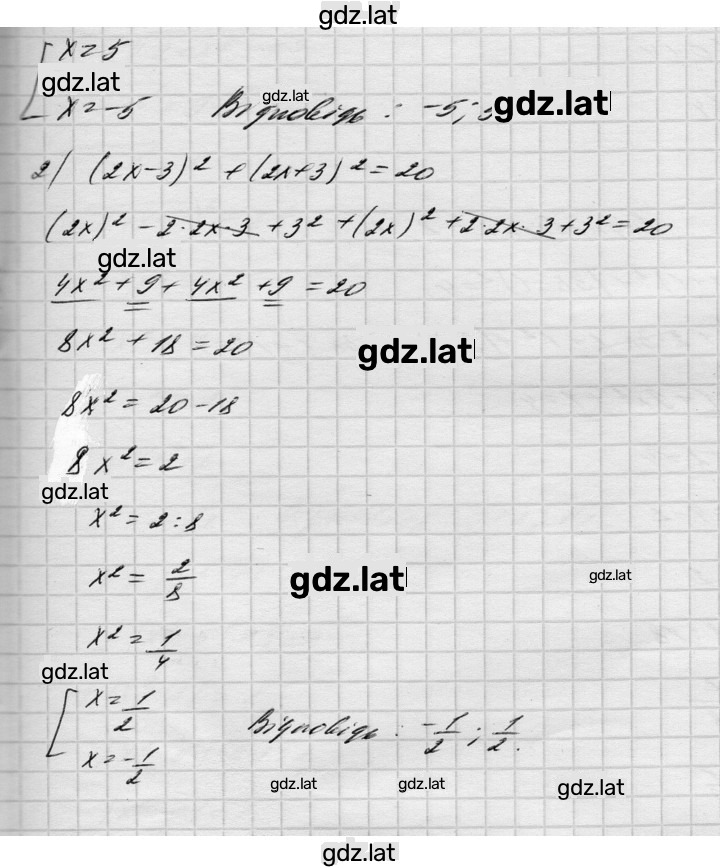 gdz.lat
[ x = 5
gdz.lat
x = -5 Відповідь: -5; gdz.lat
gdz.lat
2) (2x-3)² + (2x+3)² = 20
(2x)² - 2·2x·3 + 3² + (2x)² + 2·2x·3 + 3² = 20
gdz.lat
4x² + 9 + 4x² + 9 = 20
8x² + 18 = 20
gdz.lat
8x² = 20 - 18
8x² = 2
gdz.lat
x² = 2 : 8
x² = 2/8
gdz.lat gdz.lat
x² = 1/4
gdz.lat
[ x = 1/2
Відповідь: -1/2; 1/2.
x = -1/2
gdz.lat gdz.lat gdz.lat
gdz.lat